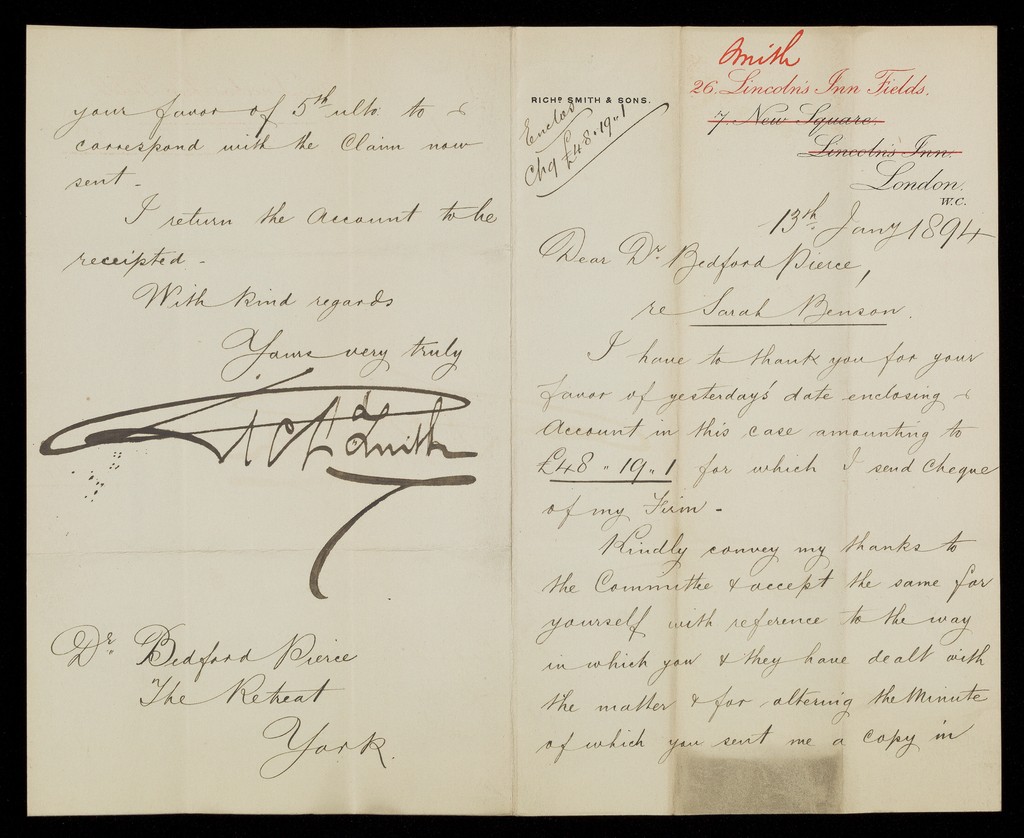 Smith
26. Lincoln's Inn Fields.
RICHD. SMITH & SONS.
7. New Square.
Lincoln's Inn.
London.
W.C.
Enclos
Chq £48.19.1
13th. Jany 1894
Dear Dr. Bedford Pierce,
re Sarah Benson.
I have to thank you for your
favor of yesterday's date enclosing
Account in this case amounting to
£48 " 19 " 1 for which I send Cheque
of my Firm -
Kindly convey my thanks to
the Committee & accept the same for
yourself with reference to the way
in which you & they have dealt with
the matter & for altering the Minute
of which you sent me a copy in
your favor of 5th ulto to
correspond with the Claim now
sent -
I return the Account to be
receipted -
With kind regards
Yours very truly
Smith
Dr. Bedford Pierce
The Retreat
York.